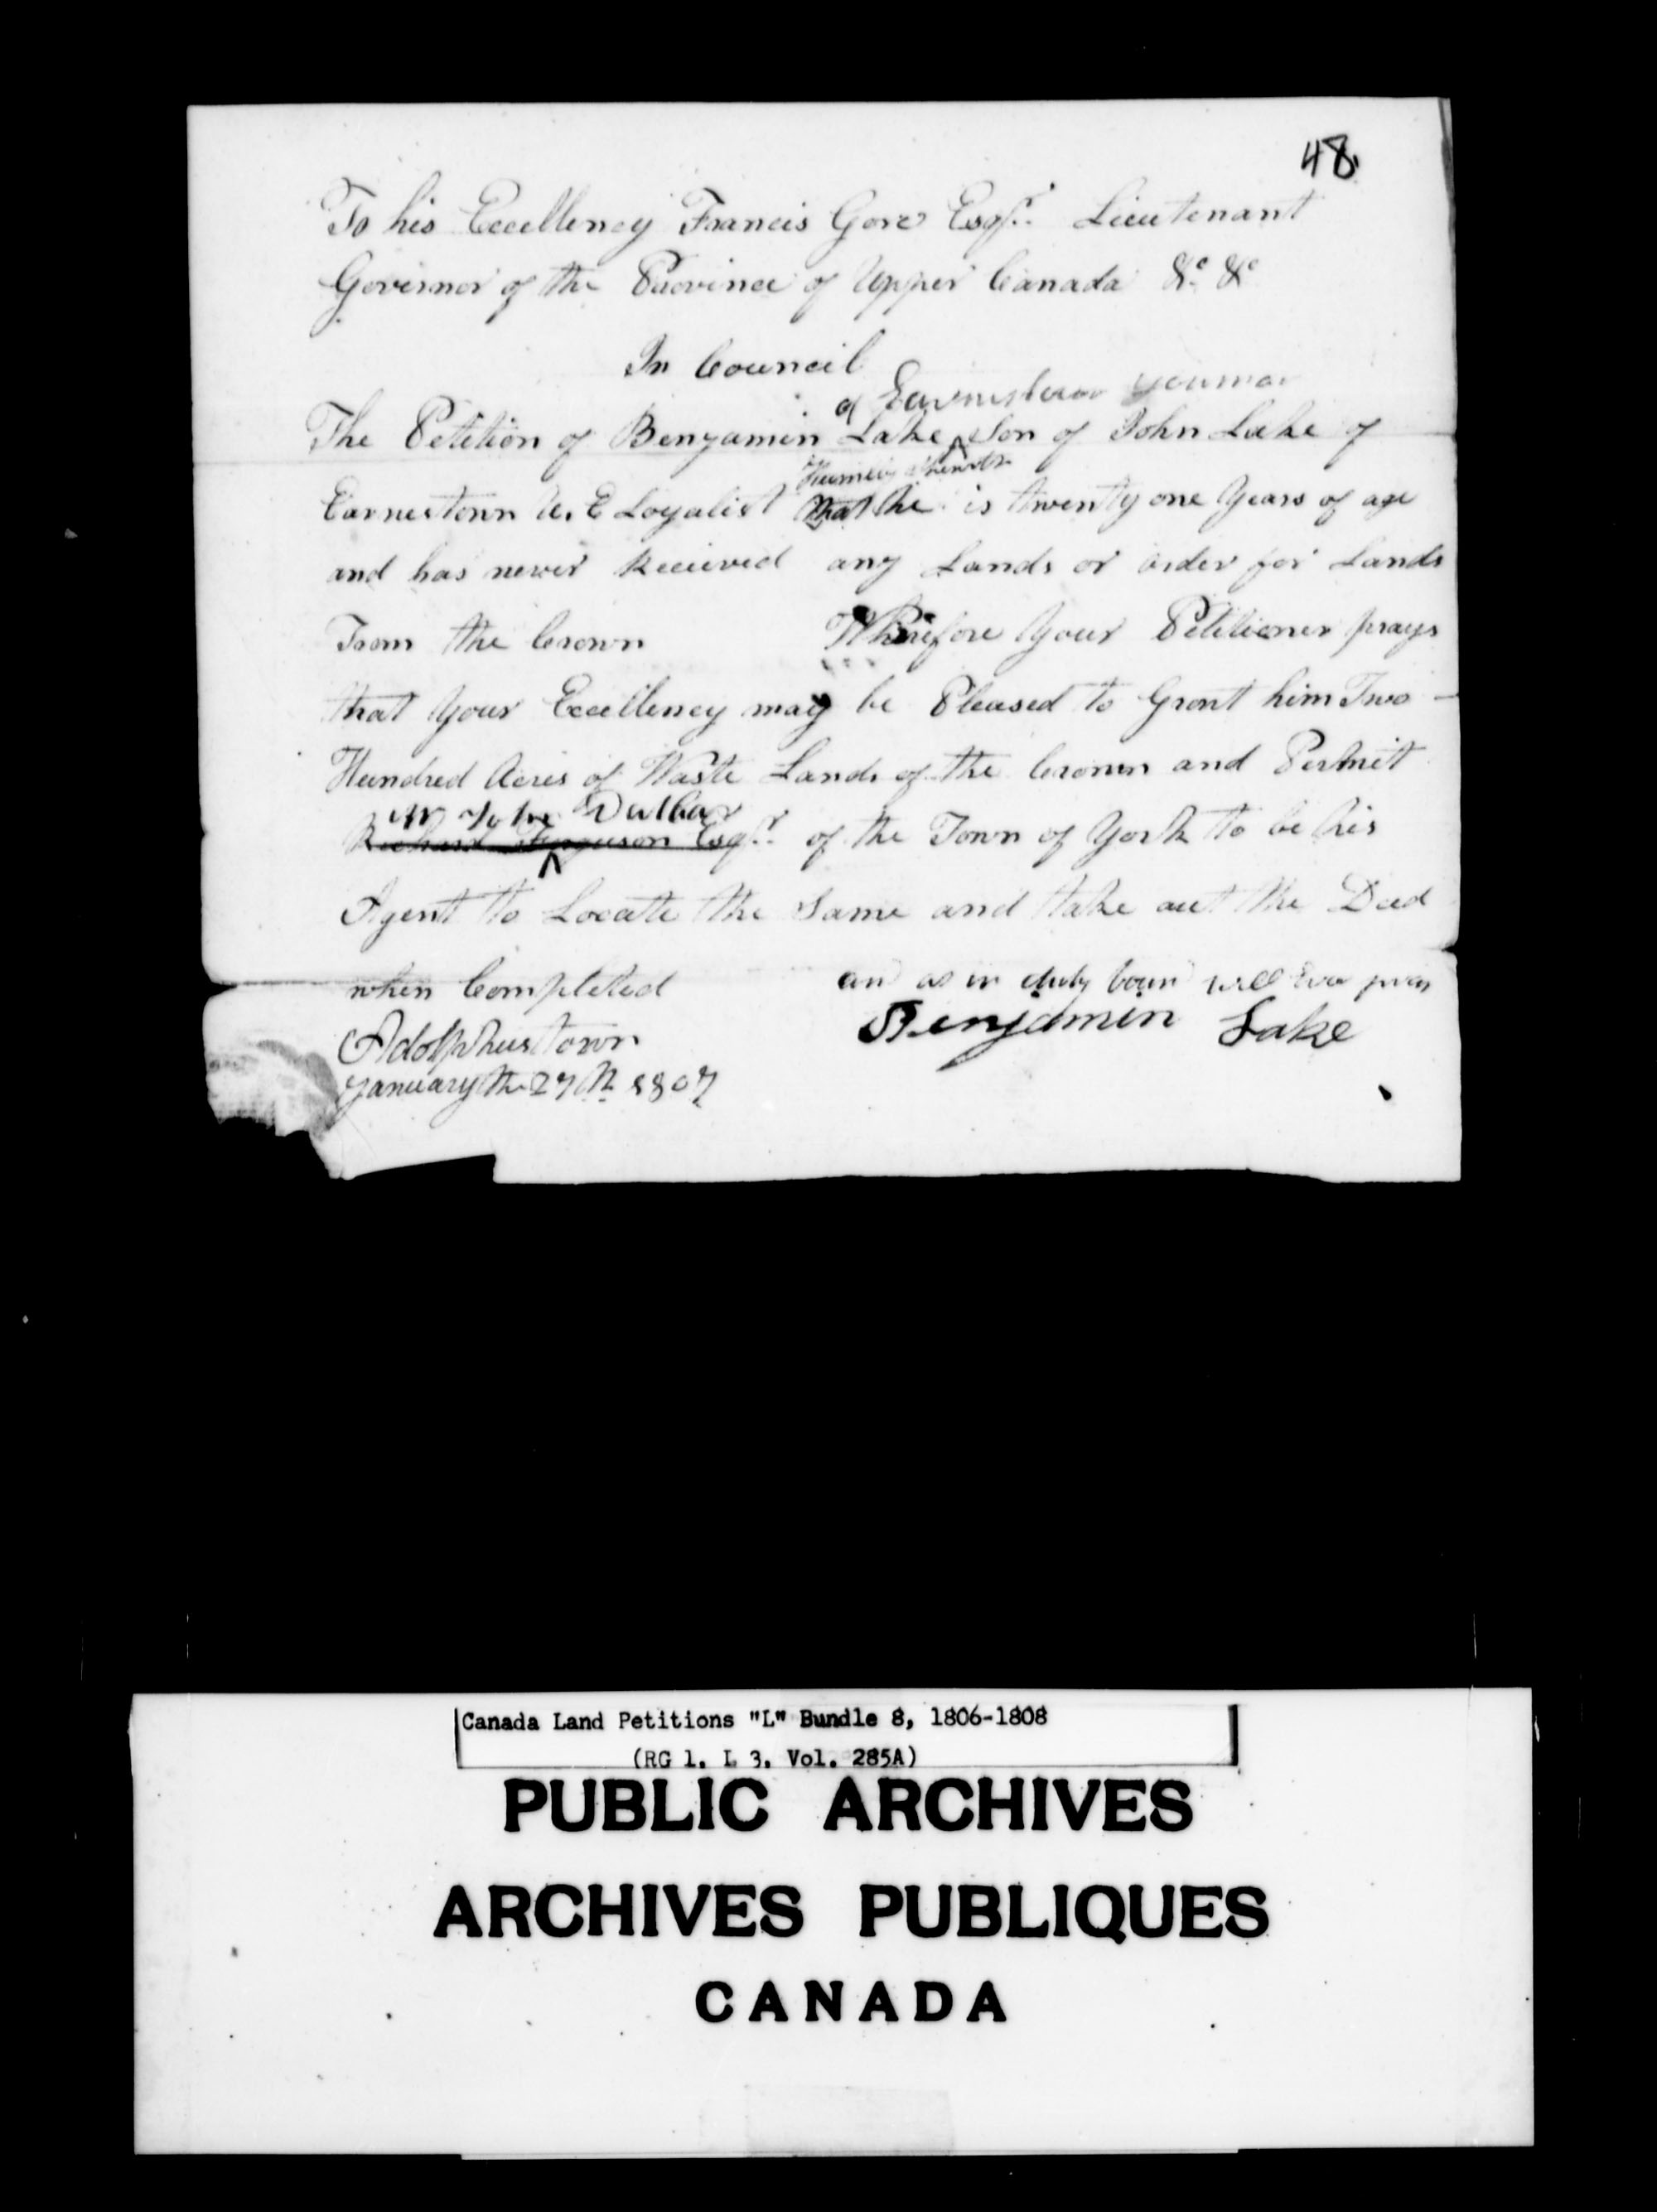 48
To his Excellency Francis Gore Esqr. Lieutenant
Governor of the Province of Upper Canada &c &c
In Council
of Earnestown youman
The Petition of Benjamin Lake Son of John Lake of
Humbly Sheweth
Earnestown U.E Loyalist that he is twenty one Years of age
and has never Recieved any Lands or order for Lands
From the Crown Wherefore Your Petitioner prays
that Your Excellency may be Pleased to Grant him Two -
Hundred Acres of Waste Lands of the Crown and Permit
Mr John
Richard Ferguson Esqr. of the Town of York to be his
Agent to Locate the Same and take out the Deed
when Completed and as in duty boun will ever pray
Benjamin Lake
Adolphustown
January the 27th 1807
Canada Land Petitions "L" Bundle 8, 1806-1808
(RG 1, L 3, Vol. 285A)
PUBLIC ARCHIVES
ARCHIVES PUBLIQUES
CANADA